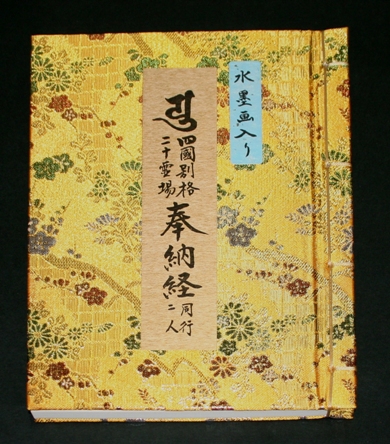 水墨画入り
四國别格
二十霊場
奉納経
同行
二人